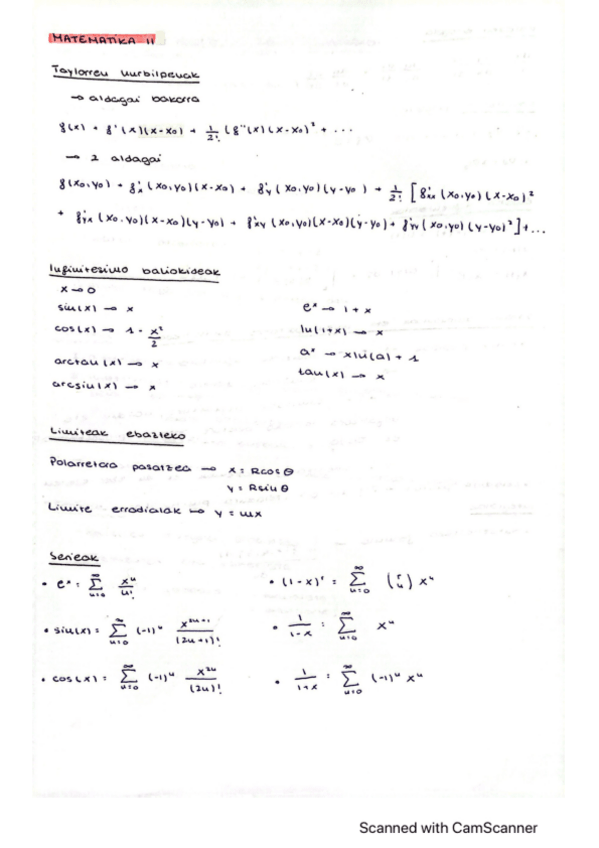 MATEMATIKA II
Taylorren hurbilpenak
→ aldagai bakarra
f(x) + f'(x)(x-x₀) + 1/2! (f''(x)(x-x₀)² + ...
→ 2 aldagai
f(x₀,y₀) + f'x(x₀,y₀)(x-x₀) + f'y(x₀,y₀)(y-y₀) + 1/2! [f''xx(x₀,y₀)(x-x₀)²
+ f''yx(x₀,y₀)(x-x₀)(y-y₀) + f''xy(x₀,y₀)(x-x₀)(y-y₀) + f''yy(x₀,y₀)(y-y₀)²] + ...
Infinitesimo baliokideak
x → 0
sin(x) → x
cos(x) → 1 - x²/2
arctan(x) → x
arcsin(x) → x
eˣ → 1 + x
ln(1+x) → x
aˣ → xln(a) + 1
tan(x) → x
Limiteak ebazteko
Polarretara pasatzea → x = Rcosθ
y = Rsinθ
Limite erradialak → y = mx
Serieak
• eˣ = ∑_{n=0}^{∞} xⁿ/n!
• sin(x) = ∑_{n=0}^{∞} (-1)ⁿ x²ⁿ⁺¹/(2n+1)!
• cos(x) = ∑_{n=0}^{∞} (-1)ⁿ x²ⁿ/(2n)!
• (1-x)ʳ = ∑_{n=0}^{∞} (r n) xⁿ
• 1/(1-x) = ∑_{n=0}^{∞} xⁿ
• 1/(1+x) = ∑_{n=0}^{∞} (-1)ⁿ xⁿ
Scanned with CamScanner